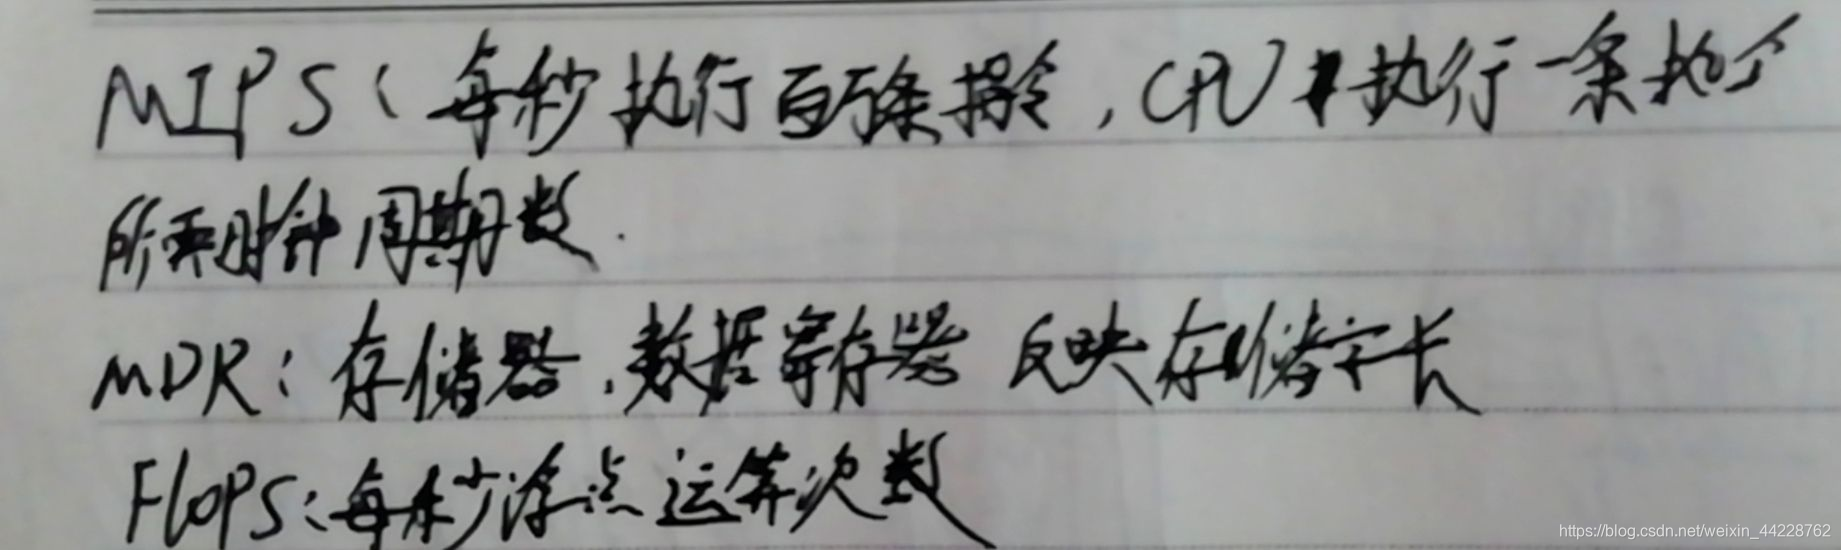 MIPS：每秒执行百万条指令，CPU执行一条执令
所需时钟周期数.
MDR：存储器，数据寄存器 反映存储字长
FlOPS：每秒浮点运算次数
https://blog.csdn.net/weixin_44228762